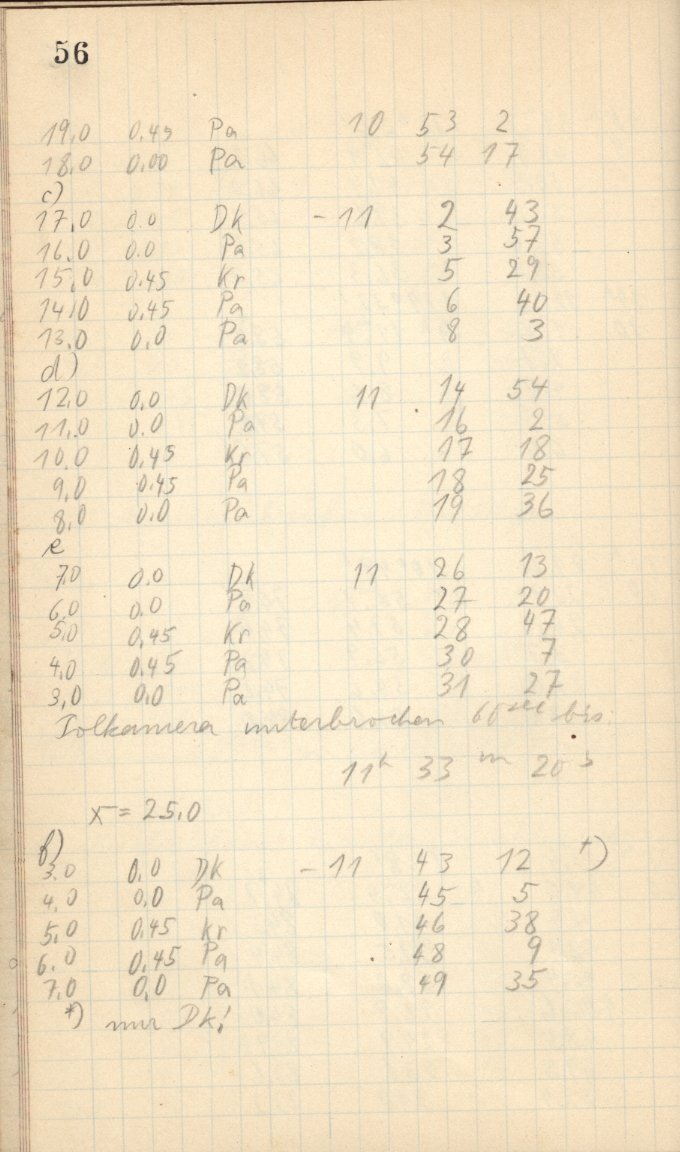 56
19,0 0.45 Pa 10 53 2
18,0 0,00 Pa 54 17
c)
17,0 0.0 Dk - 11 2 43
16,0 0.0 Pa 3 57
15,0 0.45 Kr 5 29
14,0 0.45 Pa 6 40
13,0 0,0 Pa 8 3
d)
12,0 0.0 Dk 11 14 54
11,0 0.0 Pa 16 2
10,0 0,45 Kr 17 18
9,0 0.45 Pa 18 25
8,0 0.0 Pa 19 36
e
7,0 0.0 Dk 11 26 13
6,0 0.0 Pa 27 20
5,0 0,45 Kr 28 47
4,0 0.45 Pa 30 7
3,0 0,0 Pa 31 27
unterbrochen sec bis
11h 33 m 20 s
x = 25,0
f)
3,0 0,0 Dk - 11 43 12 *)
4,0 0,0 Pa 45 5
5,0 0.45 Kr 46 38
6,0 0,45 Pa 48 9
7,0 0,0 Pa 49 35
*) nur Dk!